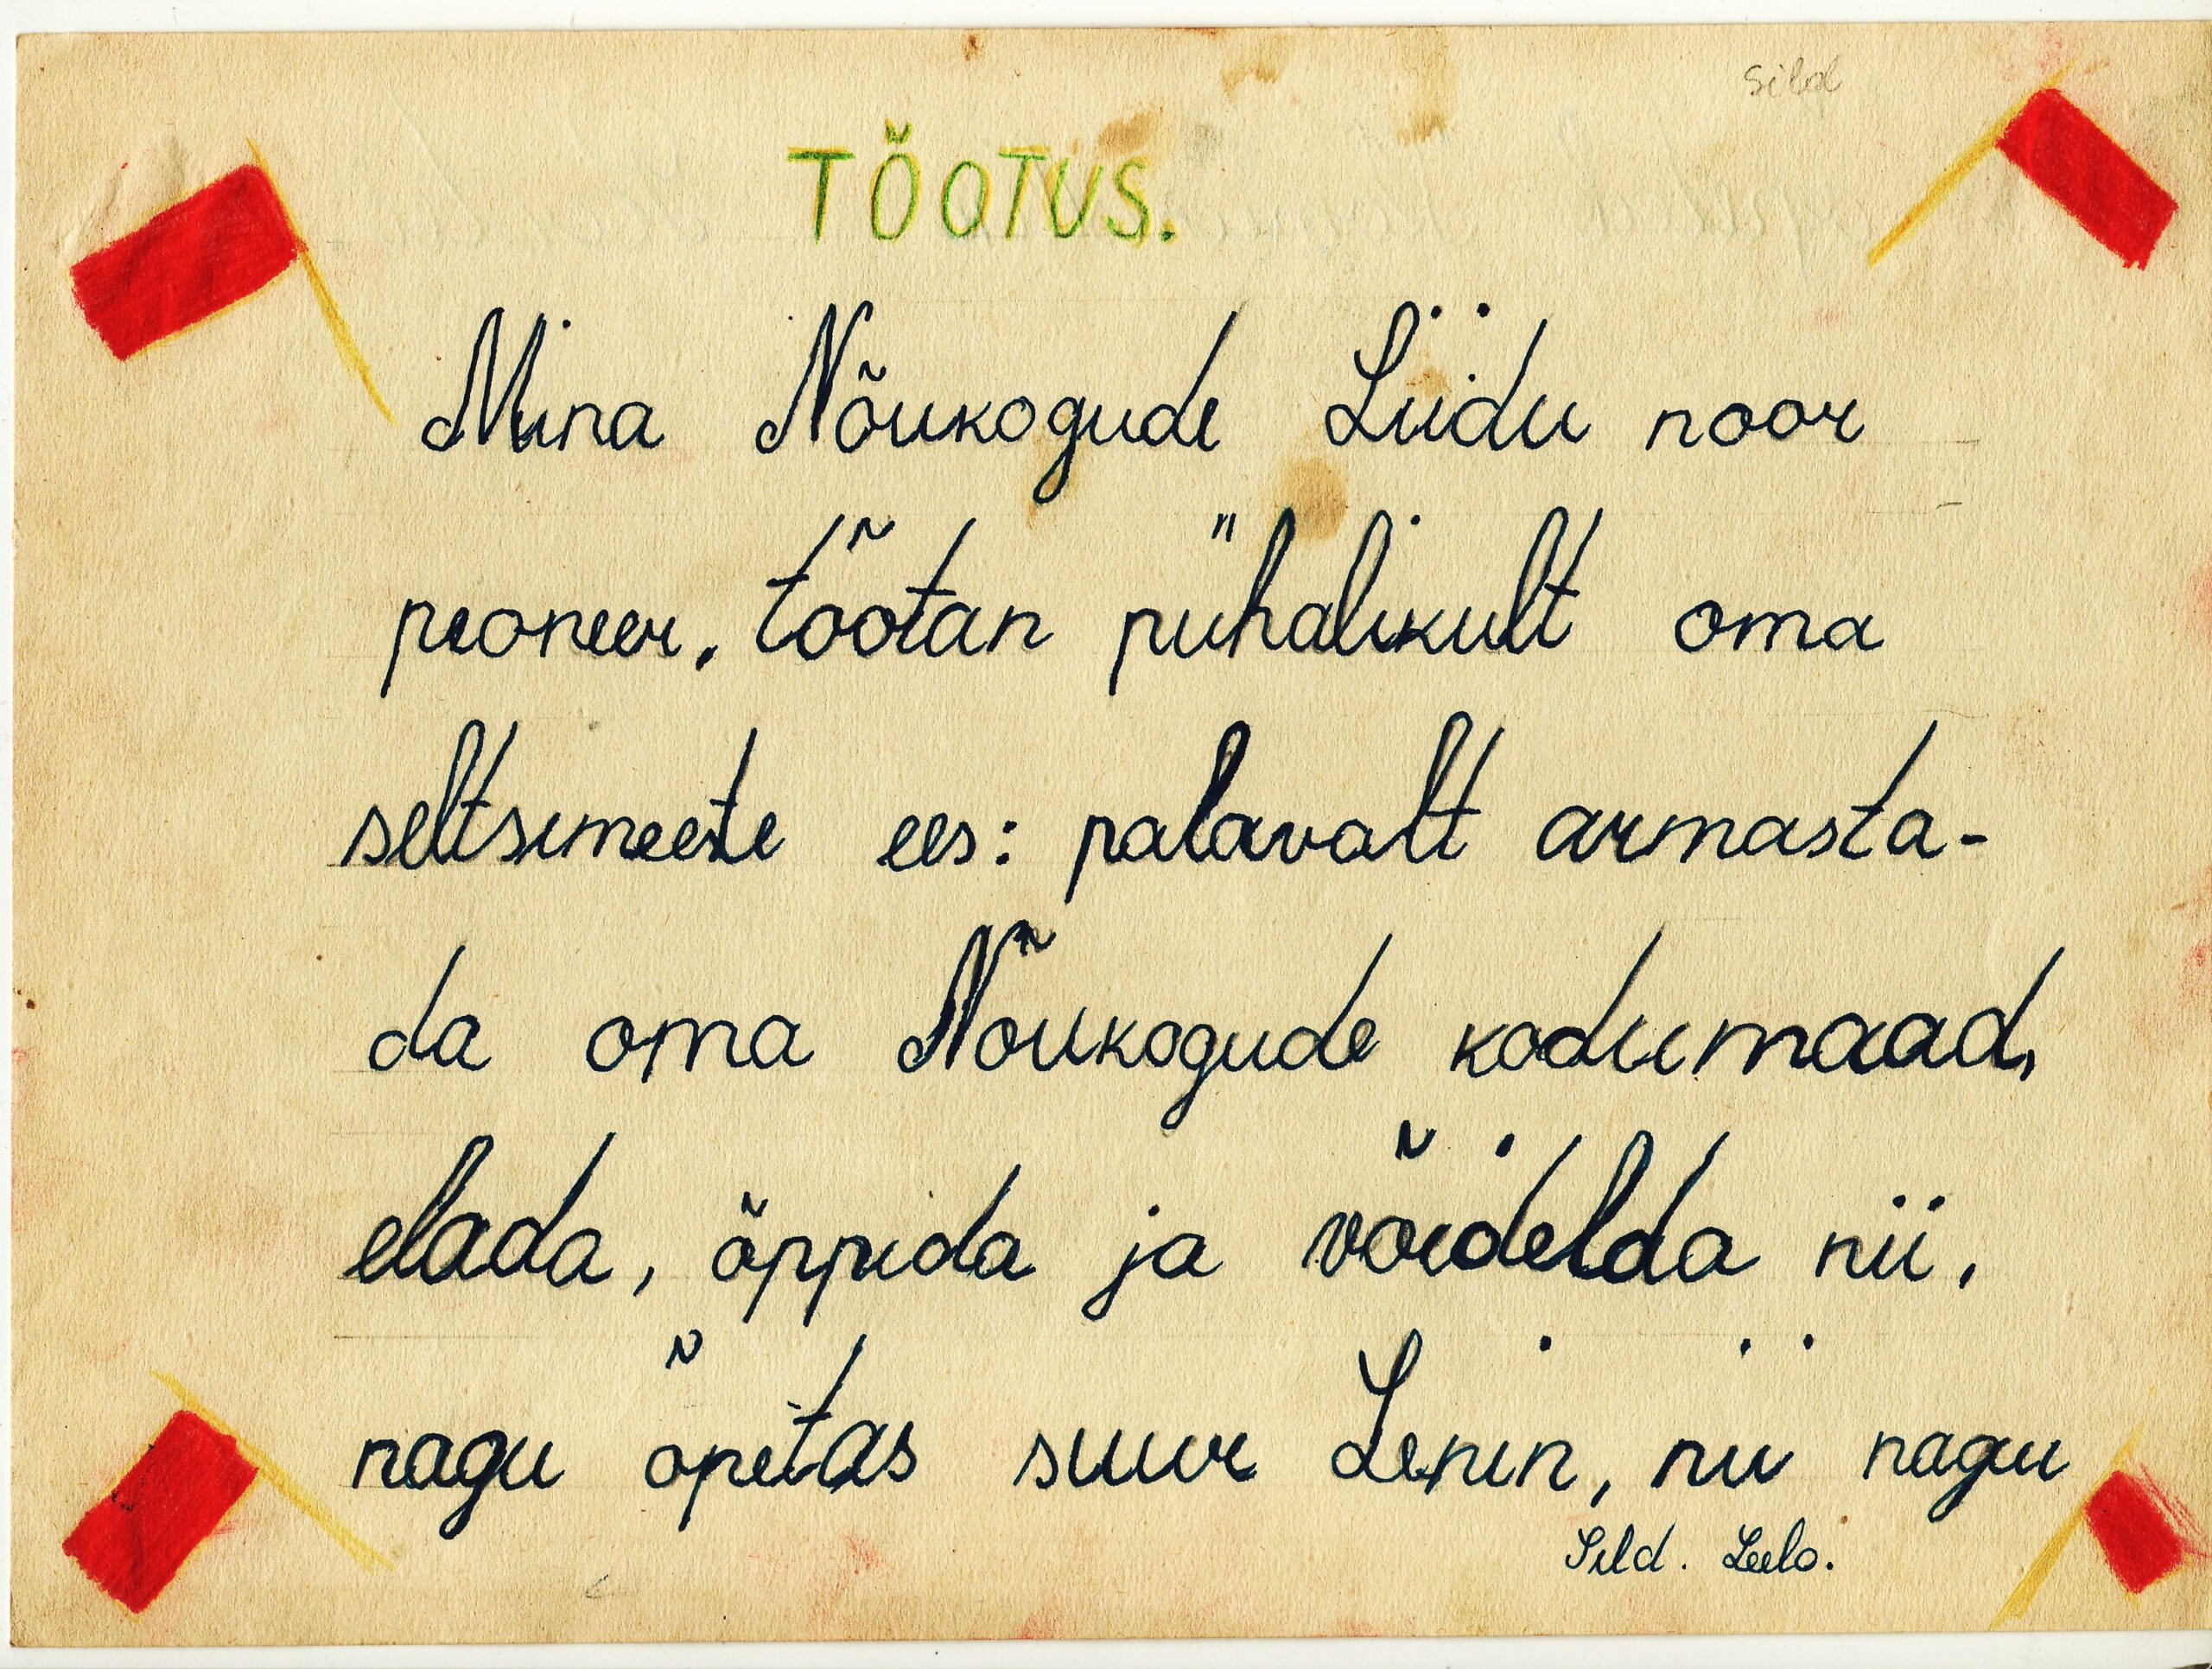 Sild
TÕOTUS.
Mina Nõukogude Liidu noor
pioneer, tõotan pühalikult oma
seltsimeeste ees: palavalt armasta-
da oma Nõukogude kodumaad,
elada, õppida ja võidelda nii,
nagu õpetas suur Lenin, nii nagu
Sild. Leelo.